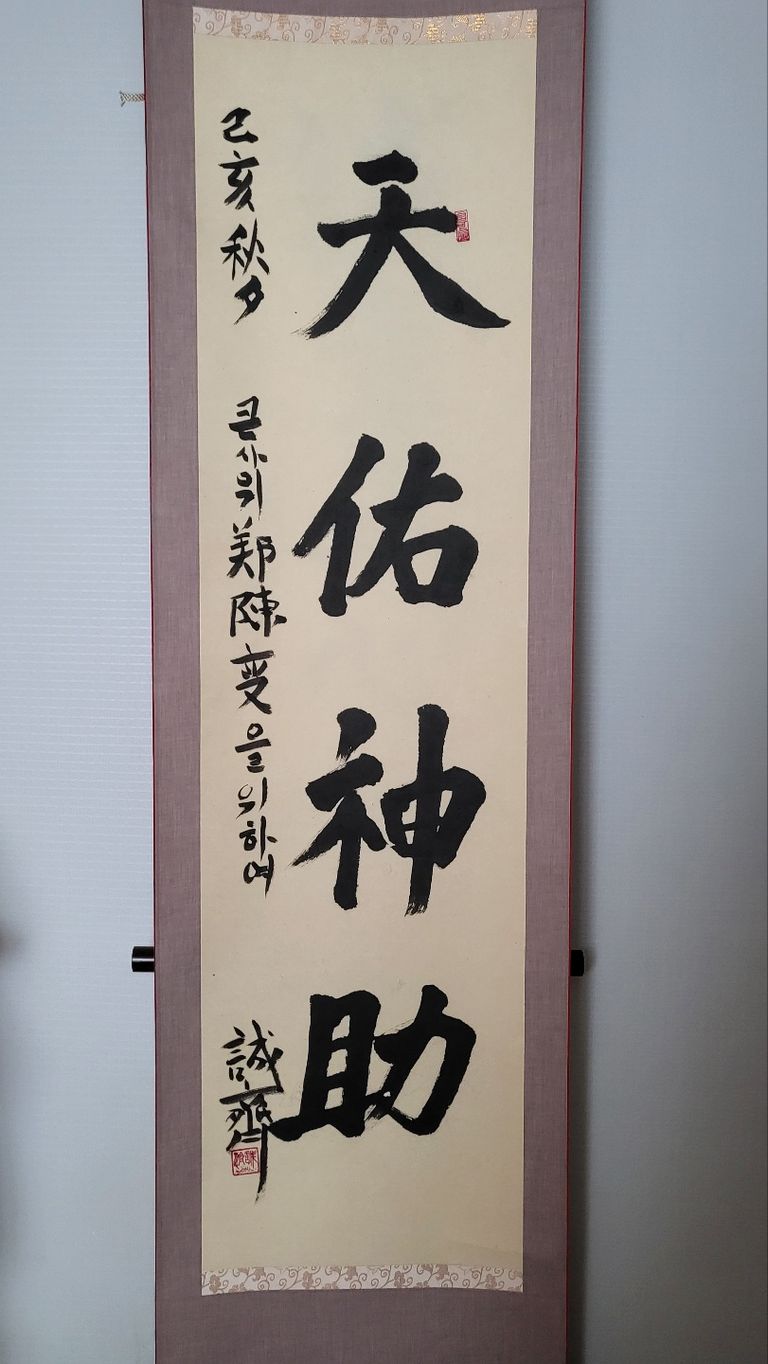 天佑神助
己亥秋夕
큰사위 鄭陳变을위하여
誠齋